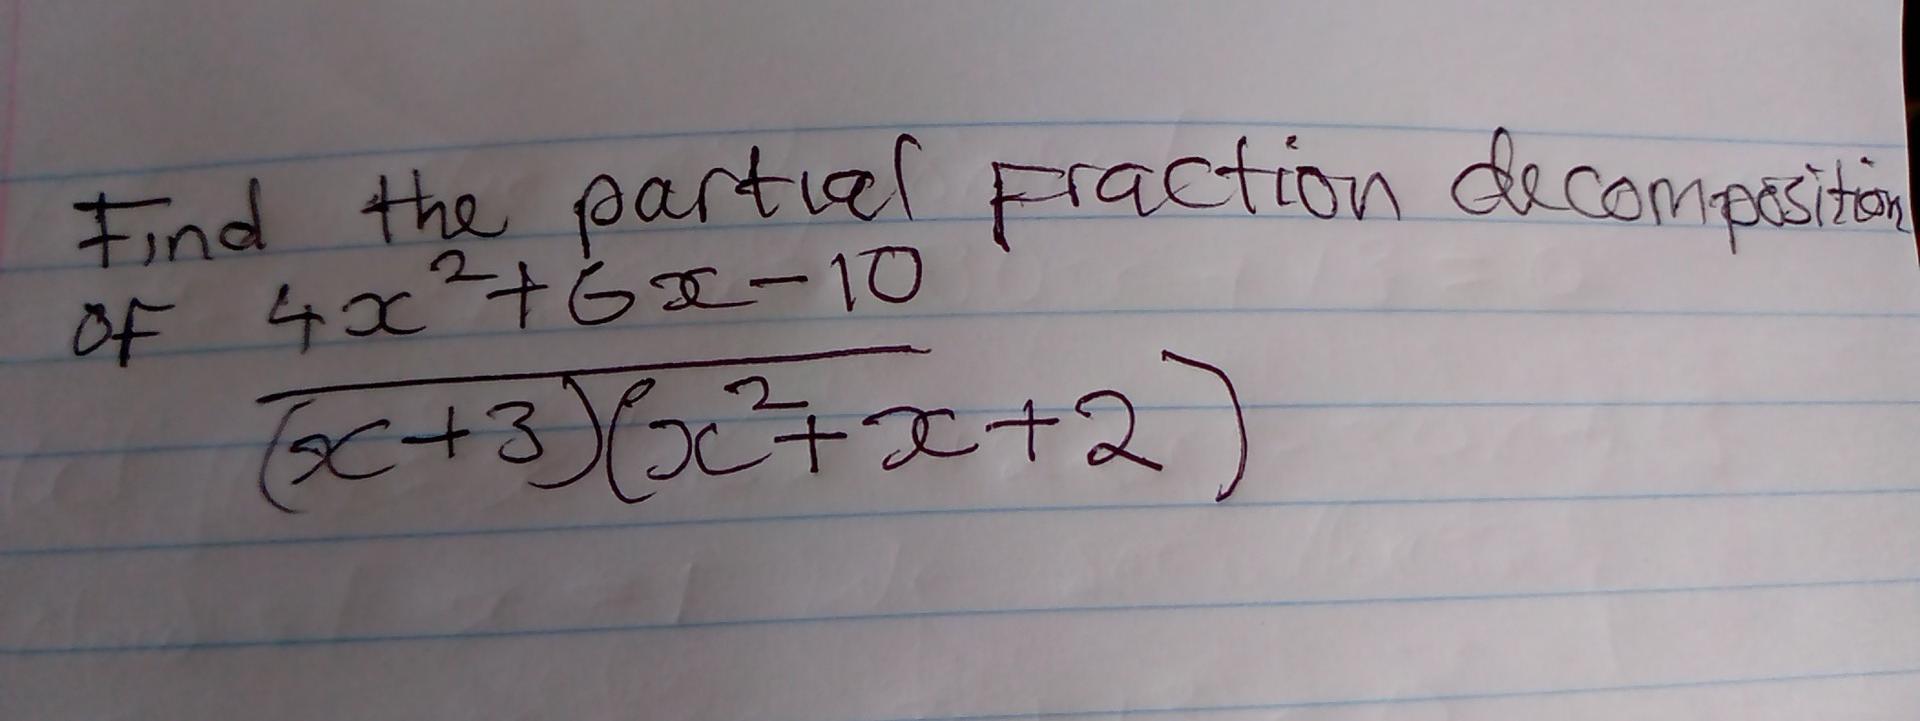 Find the partial Fraction decomposition
of 4x²+6x-10
(x+3)(x²+x+2)